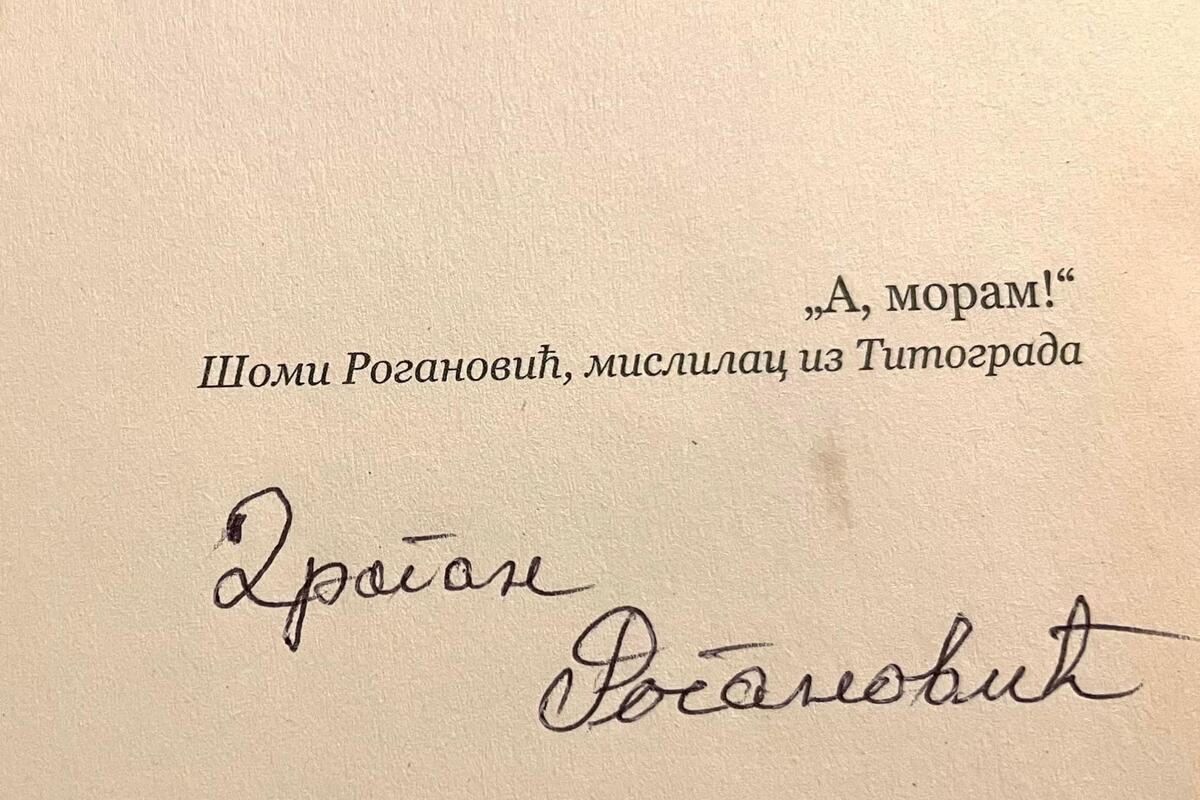 „А, морам!“
Шоми Рогановић, мислилац из Титограда
Драган
Рогановић